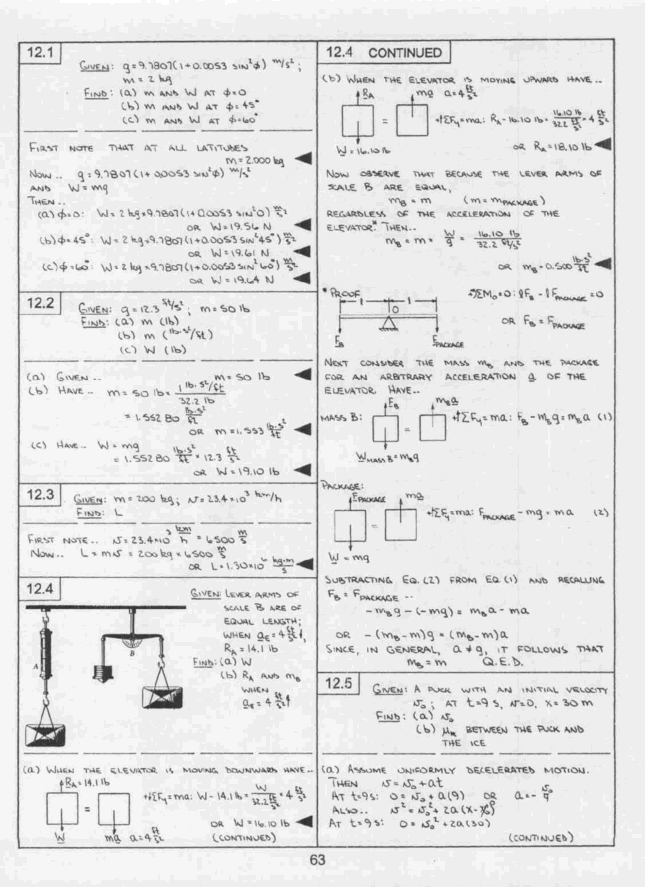 12.1
GIVEN: g = 9.7807(1+0.0053 sin²φ) m/s²;
m = 2 kg
FIND: (a) m AND W AT φ=0
(b) m AND W AT φ=45°
(c) m AND W AT φ=60°
FIRST NOTE THAT AT ALL LATITUDES
m = 2.000 kg
NOW.. g = 9.7807(1+0.0053 sin²φ) m/s²
AND W = mg
THEN..
(a) φ=0: W = 2 kg × 9.7807(1+0.0053 sin²0) m/s²
OR W = 19.56 N
(b) φ=45°: W = 2 kg × 9.7807(1+0.0053 sin²45°) m/s²
OR W = 19.61 N
(c) φ=60°: W = 2 kg × 9.7807(1+0.0053 sin²60°) m/s²
OR W = 19.64 N
12.2
GIVEN: g = 12.3 ft/s²; m = 50 lb
FIND: (a) m (lb)
(b) m (lb·s²/ft)
(c) W (lb)
(a) GIVEN.. m = 50 lb
(b) HAVE.. m = 50 lb × 1 lb·s²/ft / 32.2 lb
= 1.55280 lb·s²/ft
OR m = 1.553 lb·s²/ft
(c) HAVE.. W = mg
= 1.55280 lb·s²/ft × 12.3 ft/s²
OR W = 19.10 lb
12.3
GIVEN: m = 200 kg; v = 23.4×10³ km/h
FIND: L
FIRST NOTE.. v = 23.4×10³ km/h = 6500 m/s
NOW.. L = mv = 200 kg × 6500 m/s
OR L = 1.30×10⁶ kg·m/s
12.4
GIVEN: LEVER ARMS OF
SCALE B ARE OF
EQUAL LENGTH;
WHEN a_E = 4 ft/s² ↓,
R_A = 14.1 lb
FIND: (a) W
(b) R_A AND m_B
WHEN
a_E = 4 ft/s² ↑
A
B
(a) WHEN THE ELEVATOR IS MOVING DOWNWARD HAVE..
R_A = 14.1 lb
=
+↓ΣF_y = ma: W - 14.1 lb = W / 32.2 ft/s² × 4 ft/s²
OR W = 16.10 lb
W
ma a = 4 ft/s²
(CONTINUED)
12.4 CONTINUED
(b) WHEN THE ELEVATOR IS MOVING UPWARD HAVE..
R_A
ma a = 4 ft/s²
=
+↑ΣF_y = ma: R_A - 16.10 lb = 16.10 lb / 32.2 ft/s² × 4 ft/s²
W = 16.10 lb
OR R_A = 18.10 lb
NOW OBSERVE THAT BECAUSE THE LEVER ARMS OF
SCALE B ARE EQUAL,
m_B = m (m = m_PACKAGE)
REGARDLESS OF THE ACCELERATION OF THE
ELEVATOR.* THEN..
m_B = m = W/g = 16.10 lb / 32.2 ft/s²
OR m_B = 0.500 lb·s²/ft
*PROOF
l l
O
+ΣM_O = 0: lF_B - lF_PACKAGE = 0
OR F_B = F_PACKAGE
F_B
F_PACKAGE
NEXT CONSIDER THE MASS m_B AND THE PACKAGE
FOR AN ARBITRARY ACCELERATION a OF THE
ELEVATOR. HAVE..
F_B
m_B a
MASS B:
=
+↑ΣF_y = ma: F_B - m_B g = m_B a (1)
W_MASS B = m_B g
PACKAGE:
F_PACKAGE
ma
=
+↑ΣF_y = ma: F_PACKAGE - mg = ma (2)
W = mg
SUBTRACTING EQ. (2) FROM EQ (1) AND RECALLING
F_B = F_PACKAGE ..
-m_B g - (-mg) = m_B a - ma
OR -(m_B - m)g = (m_B - m)a
SINCE, IN GENERAL, a ≠ g, IT FOLLOWS THAT
m_B = m Q.E.D.
12.5
GIVEN: A PUCK WITH AN INITIAL VELOCITY
v₀; AT t=9 s, v=0, x=30 m
FIND: (a) v₀
(b) μ_k BETWEEN THE PUCK AND
THE ICE
(a) ASSUME UNIFORMLY DECELERATED MOTION.
THEN v = v₀ + at
AT t=9s: 0 = v₀ + a(9) OR a = - v₀/9
ALSO.. v² = v₀² + 2a(x - x₀⁰)
AT t=9s: 0 = v₀² + 2a(30)
(CONTINUED)
63